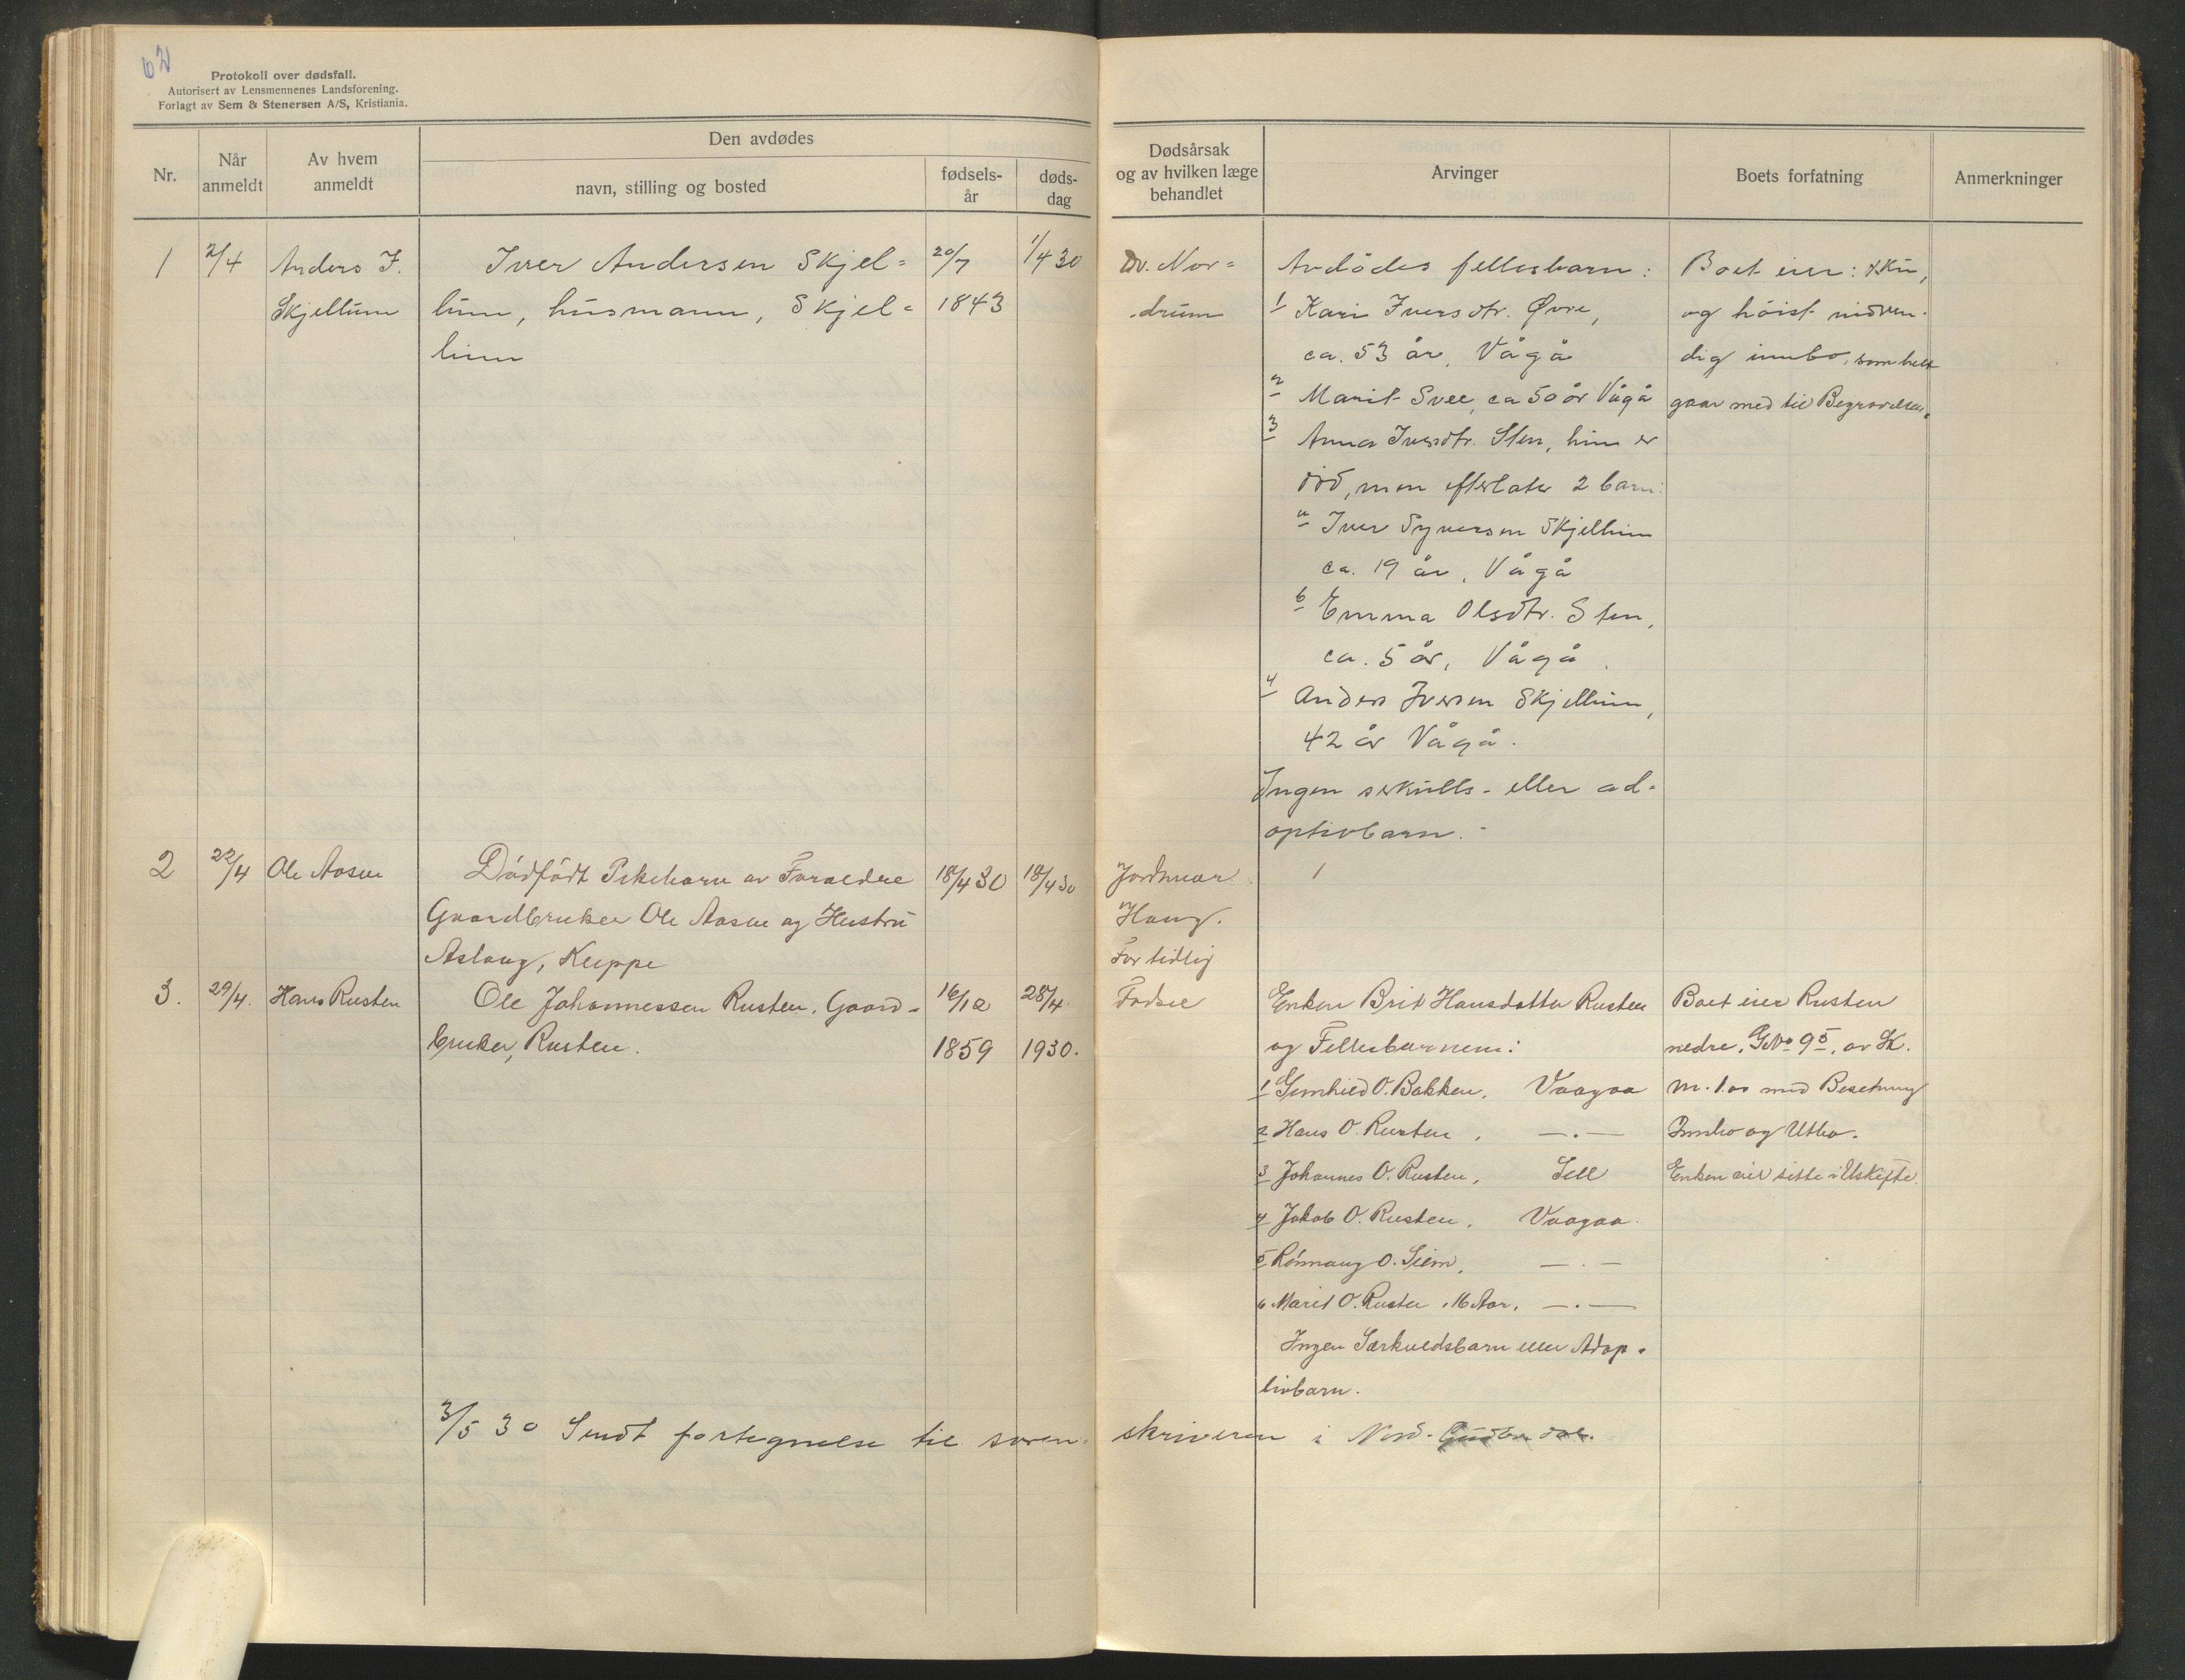 62
Protokoll over dødsfall.
Autorisert av Lensmennenes Landsforening.
Forlagt av Sem & Stenersen A/S, Kristiania.
Nr.
Når anmeldt
Av hvem anmeldt
Den avdødes
navn, stilling og bosted
fødsels-år
døds-dag
Dødsårsak
og av hvilken læge
behandlet
Arvinger
Boets forfatning
Anmerkninger
1
2/4
Anders I.
Skjellum
Iver Andersen Skjel=
lum, husmann, Skjel=
lum
20/7
1843
1/4 30
Dr. Nor=
drum
Avdødes fellesbarn:
1 Kari Iversdtr. Øvre,
ca. 53 år, Vågå
2 Marit Svee, ca 50 år Vågå
3 Anna Iversdtr. Sten, hun er
död, men efterlater 2 barn:
a Iver Syversen Skjellum
ca. 19 år, Vågå
b Emma Olsdtr. Sten,
ca. 5 år, Vågå.
4 Anders Iversen Skjellum,
42 år Vågå.
Ingen serkulls- eller ad-
optivbarn.-
Boet eier: 1 ku,
og höist nödven-
dig innbo, som helt
gaar med til Begravelsen.
2
22/4
Ole Aasen
Dödfödt Pikebarn av Foraeldre
Gaardbruker Ole Aasen og Hustru
Aslaug, Kleppe
18/4 30
18/4 30
Jordmoor
Haug.
For tidlig
Fodsel
3.
29/4.
Hans Rusten
Ole Johannessen Rusten, Gaard-
bruker, Rusten.
16/12
1859
28/4
1930.
Enken Brit Hansdatter Rusten
og Fellesbarnene:
1 Gunhild O. Bakken, Vaagaa
2 Hans O. Rusten, —.—
3 Johannes O. Rusten, Sell
4 Jakob O. Rusten, Vaagaa.
5 Rönnaug O. Siem, —.—
6 Marit O. Rusten, 16 Aar, —.—
Ingen Særkuldsbarn eller Adop-
tivbarn.
Boet eier Rusten
nedre, G No 95, av Sk.
m. 1.00 med Besetning
Innbo og Utbo.
Enken vil sitte i Uskifte.
3/5 30 Sendt fortegnelse til soren-skriveren i Nord-Gudbr.dal.